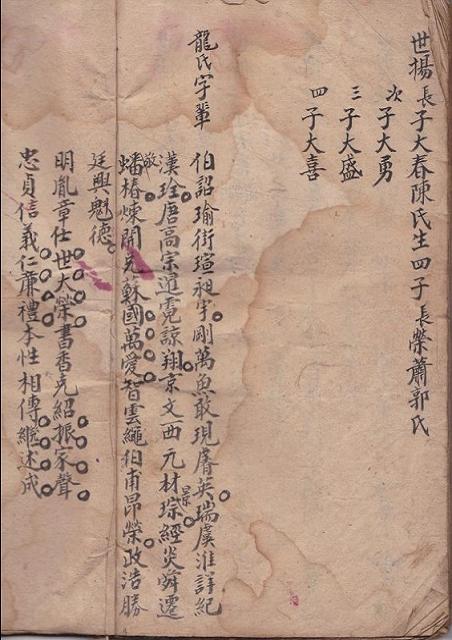 世揚長子大春陳氏生四子長榮蕭郭氏
次子大勇
三子大盛
四子大喜
龍氏字輩
伯詔瑜街瑄昶宇剛萬魚敢現膺英瑞虞淮詳紀
漢珍唐高宗道霓諒翔京文西元材琮景經炎舜遷
蟠敬椿煉開克蘇國萬愛智雲繩伯甫昂榮政浩勝
廷興魁德
明胤章仕世大榮書香克紹振家聲
忠貞信義仁廉禮本性相傳繼述成